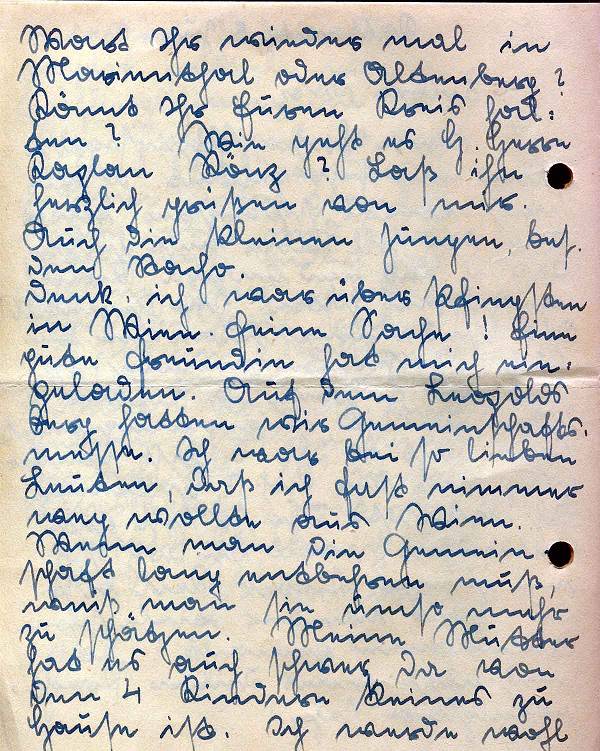 Wart Ihr wieder mal in
Marienthal oder Altenberg?
Könnt Ihr Euren Kreis hal=
ten? Wie geht es H. Herrn
Kaplan Könz? Laß ihn
herzlich grüßen von mir.
Auch die kleinen Jungen, bes.
den
Denk, ich war über Pfingsten
in Wien. Feine Sache! Eine
gute Freundin hat mich ein=
geladen. Auf dem Leopolds
berg hatten wir Gemeinschafts=
messe. Ich war bei so lieben
Leuten, daß ich fast nimmer
weg wollte aus Wien.
Wenn man die Gemein=
schaft lang entbehren muß,
weiß man sie umso mehr
zu schätzen. Meine Mutter
hat es auch schwer, da von
den 4 Kindern keines zu
Hause ist. Ich werde wohl